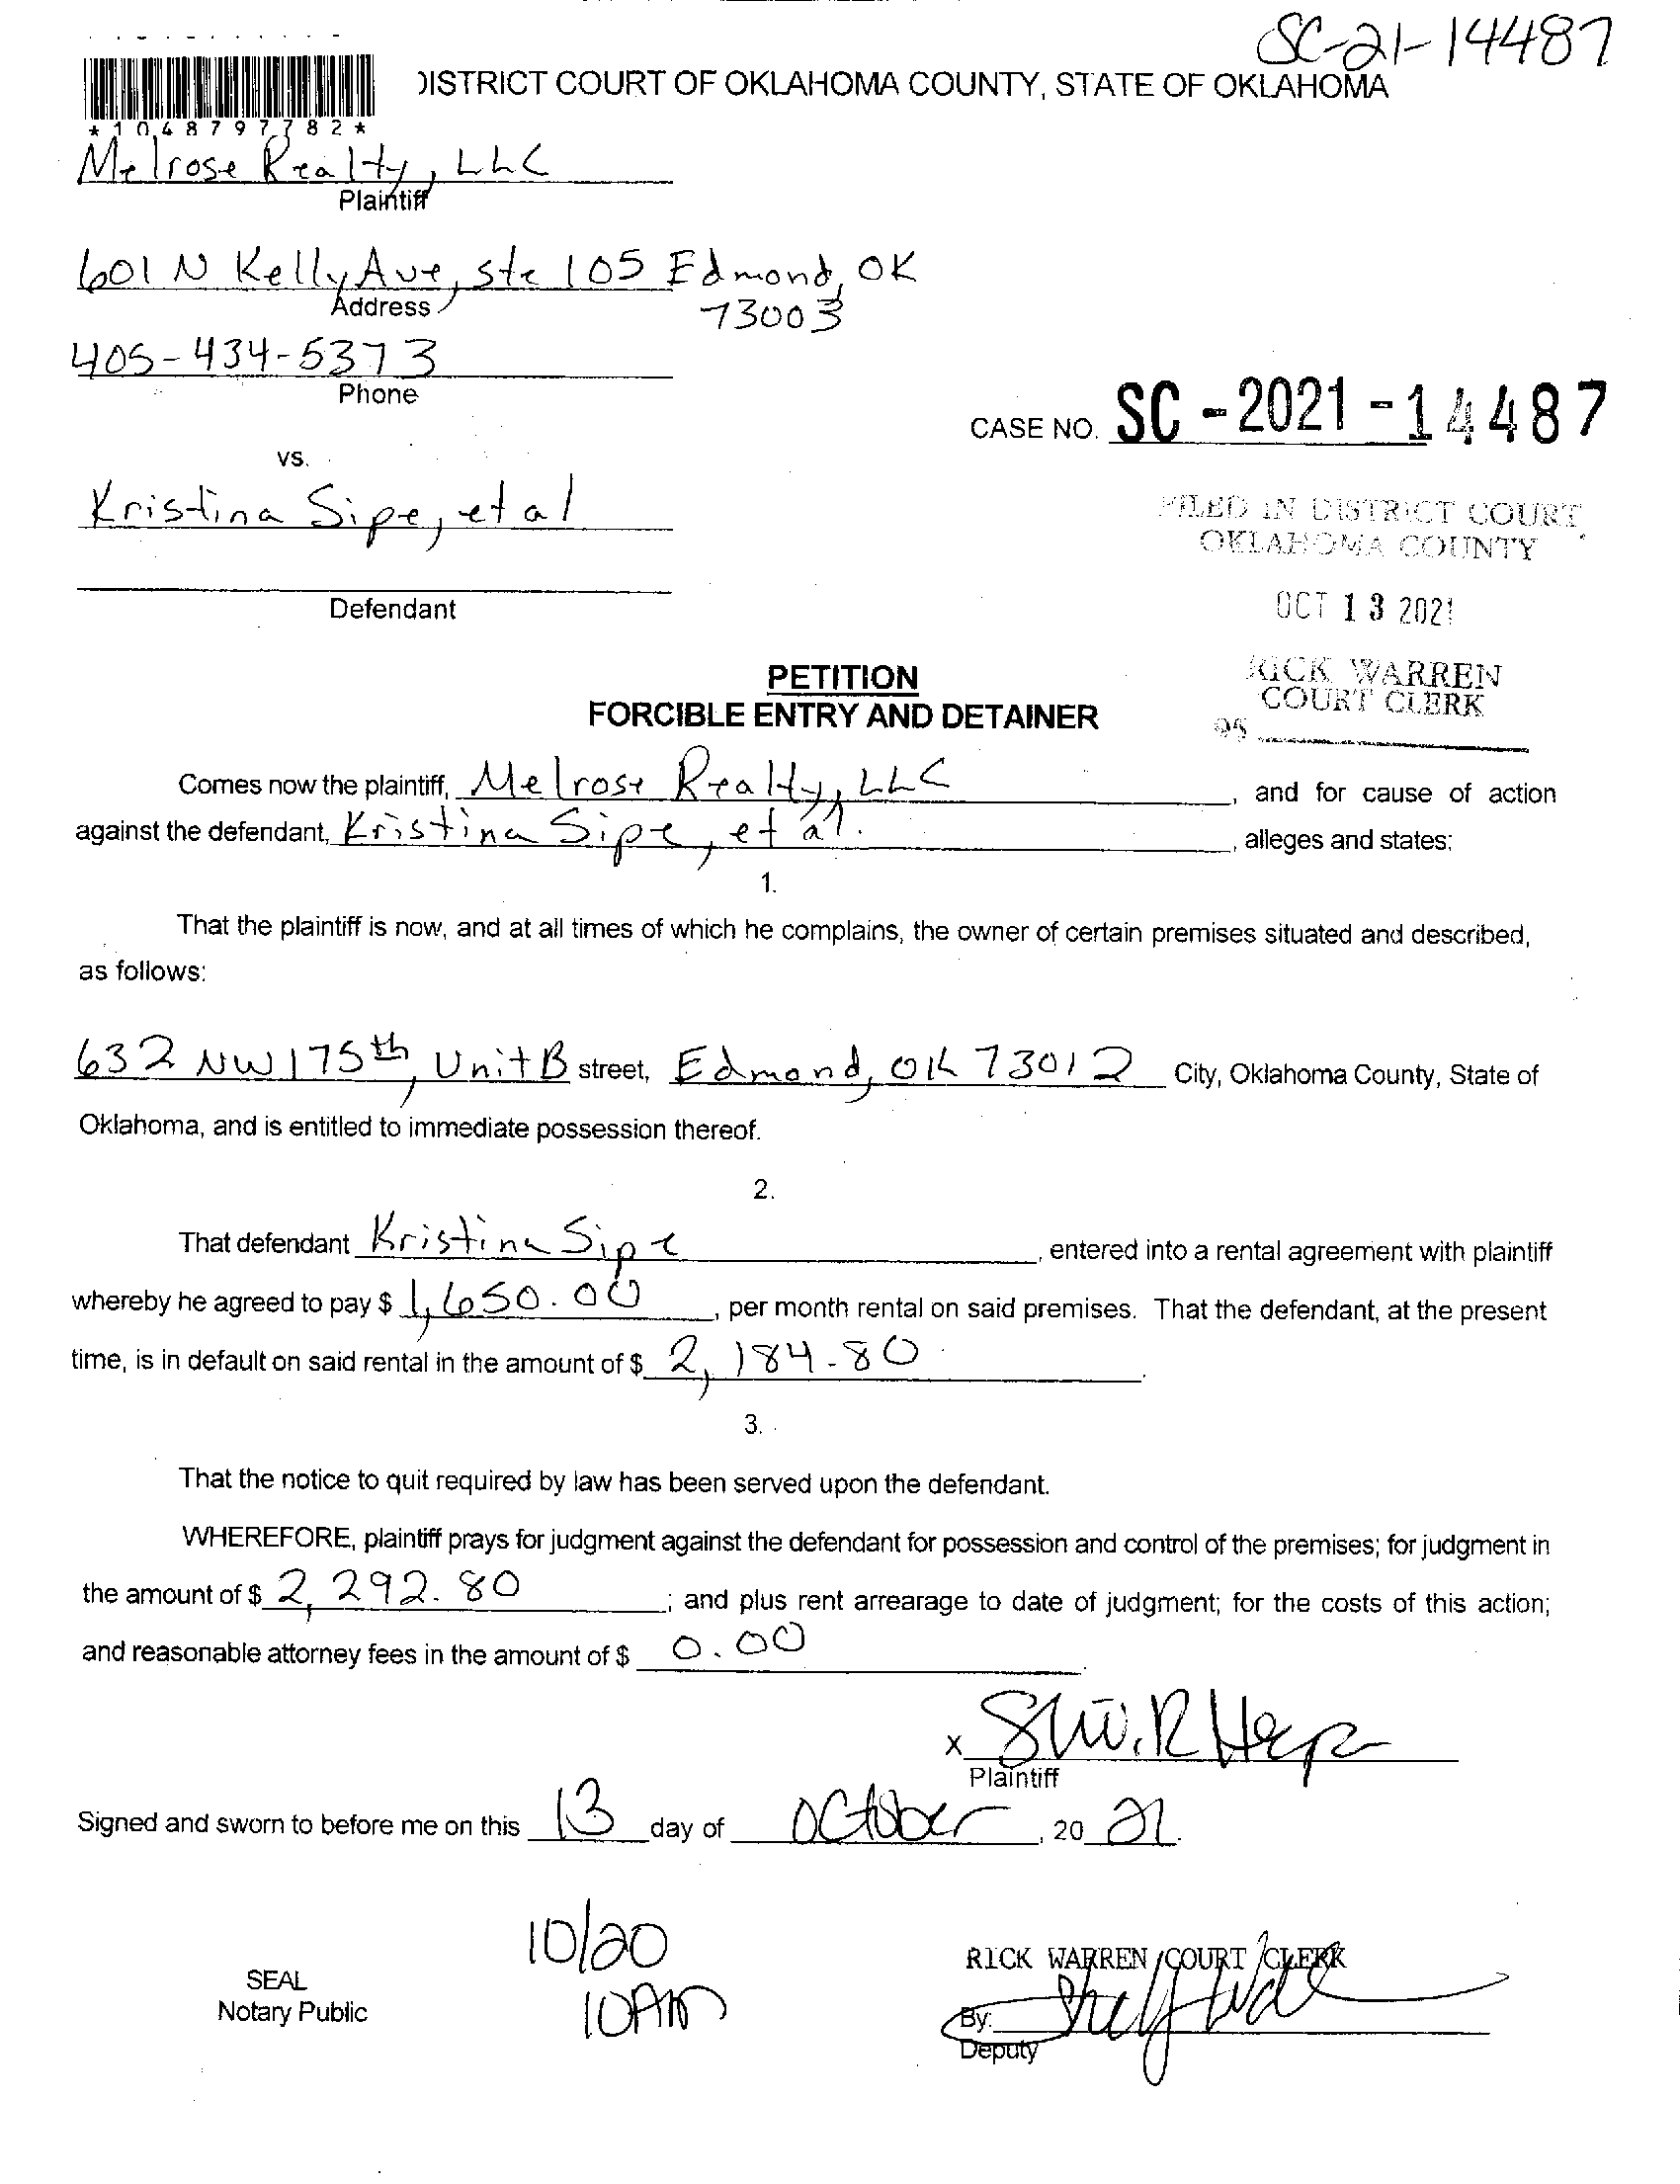 SC-21-14487
DISTRICT COURT OF OKLAHOMA COUNTY, STATE OF OKLAHOMA
*1048797782*
Melrose Realty, LLC
Plaintiff
601 N Kelly Ave, Ste 105 Edmond, OK
73003
Address
405-434-5373
Phone
CASE NO. SC-2021-14487
vs.
Kristina Sipe, et al
FILED IN DISTRICT COURT
OKLAHOMA COUNTY
Defendant
OCT 13 2021
RICK WARREN
COURT CLERK
PETITION
FORCIBLE ENTRY AND DETAINER
Comes now the plaintiff, Melrose Realty, LLC, and for cause of action
against the defendant, Kristina Sipe, et al., alleges and states;
1.
That the plaintiff is now, and at all times of which he complains, the owner of certain premises situated and described,
as follows:
632 NW 175th, Unit B street, Edmond, OK 73012 City, Oklahoma County, State of
Oklahoma, and is entitled to immediate possession thereof.
2.
That defendant Kristina Sipe, entered into a rental agreement with plaintiff
whereby he agreed to pay $ 1,650.00, per month rental on said premises. That the defendant, at the present
time, is in default on said rental in the amount of $ 2,184.80.
3.
That the notice to quit required by law has been served upon the defendant.
WHEREFORE, plaintiff prays for judgment against the defendant for possession and control of the premises; for judgment in
the amount of $ 2,292.80; and plus rent arrearage to date of judgment; for the costs of this action;
and reasonable attorney fees in the amount of $ 0.00.
X
Plaintiff
Signed and sworn to before me on this 13 day of October, 20 21.
10/20
10AM
SEAL
Notary Public
RICK WARREN COURT CLERK
By:
Deputy